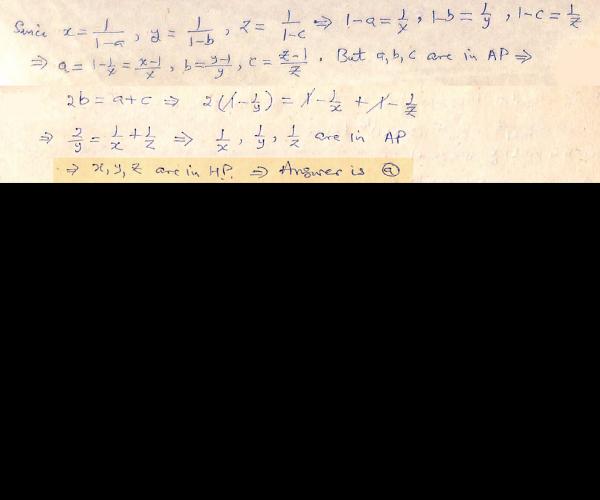 Since x = 1/(1-a), y = 1/(1-b), z = 1/(1-c) ⇒ 1-a = 1/x, 1-b = 1/y, 1-c = 1/z
⇒ a = 1-1/x = (x-1)/x, b = (y-1)/y, c = (z-1)/z. But a, b, c are in AP ⇒
2b = a+c ⇒ 2(1-1/y) = 1-1/x + 1-1/z
⇒ 2/y = 1/x + 1/z ⇒ 1/x, 1/y, 1/z are in AP
⇒ x, y, z are in HP. ⇒ Answer is ⓐ